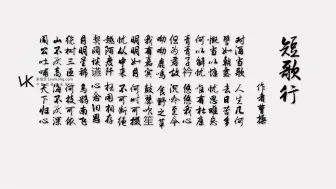 短歌行
作者曹操
对酒当歌 人生几何
譬如朝露 去日苦多
慨当以慷 忧思难忘
何以解忧 惟有杜康
青青子衿 悠悠我心
但为君故 沉吟至今
呦呦鹿鸣 食野之苹
我有嘉宾 鼓瑟吹笙
明明如月 何时可掇
忧从中来 不可断绝
越陌度阡 枉用相存
契阔谈讌 心念旧恩
月明星稀 乌鹊南飞
绕树三匝 何枝可依
山不厌高 海不厌深
周公吐哺 天下归心